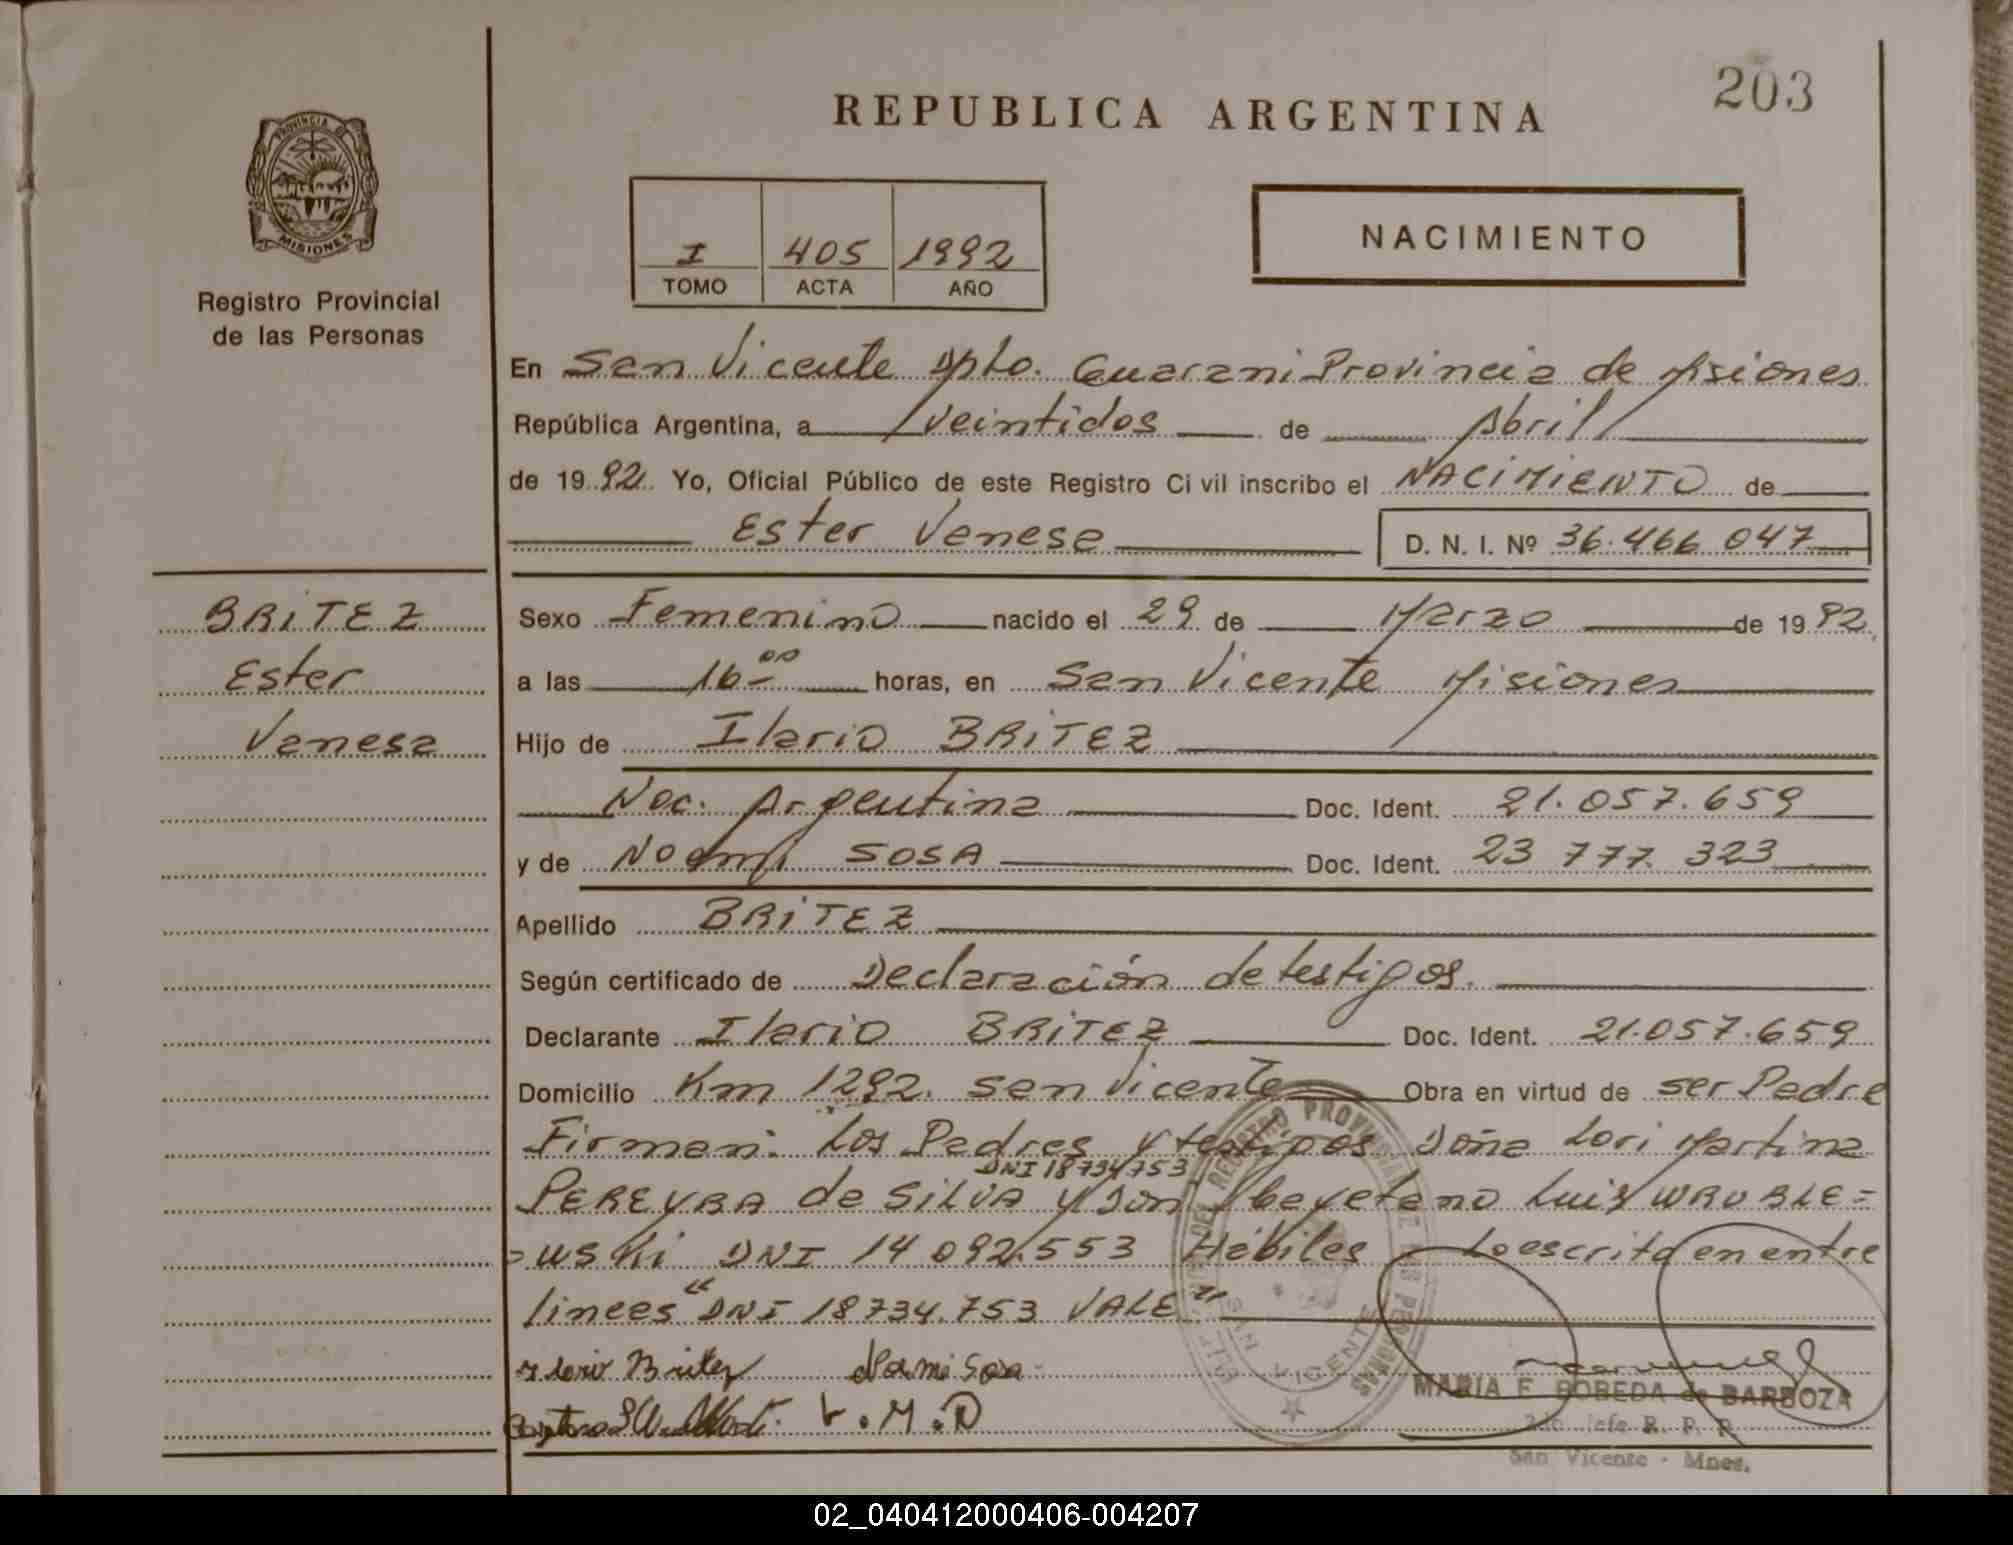 203
REPUBLICA ARGENTINA
PROVINCIA DE
MISIONES
Registro Provincial
de las Personas
I 405 1992
TOMO ACTA AÑO
NACIMIENTO
En San Vicente Dpto. Guarani Provincia de Misiones
República Argentina, a veintidos de Abril
de 19 92 Yo, Oficial Público de este Registro Civil inscribo el NACIMIENTO de
Ester Vanesa D. N. I. Nº 36.466 047
BRITEZ
Ester
Vanesa
Sexo Femenino nacido el 29 de Marzo de 19 92
a las 16 00 horas, en San Vicente Misiones
Hijo de Ilario BRITEZ
Nac. Argentina Doc. Ident. 21.057.659
y de Noemi SOSA Doc. Ident. 23 777. 323
Apellido BRITEZ
Según certificado de Declaración de testigos.
Declarante Ilario BRITEZ Doc. Ident. 21.057.659
Domicilio Km 1292. San Vicente Obra en virtud de ser Padre
Firman: Los Padres y testigos Doña Lori Martina
DNI 18734753
PEREYRA de SILVA y Don Cayetano Luis WRUBLE=
=WSKi DNI 14 092.553 Hábiles Lo escrito en entre
lineas "DNI 18734.753 VALE"
Ilario Britez Noemi Sosa
L.M.D
REGISTRO PROVINCIAL DE LAS PERSONAS
SAN VICENTE
MARIA E. BOBEDA de BARBOZA
2do Jefe R. P. P.
San Vicente - Mnes.
02_040412000406-004207